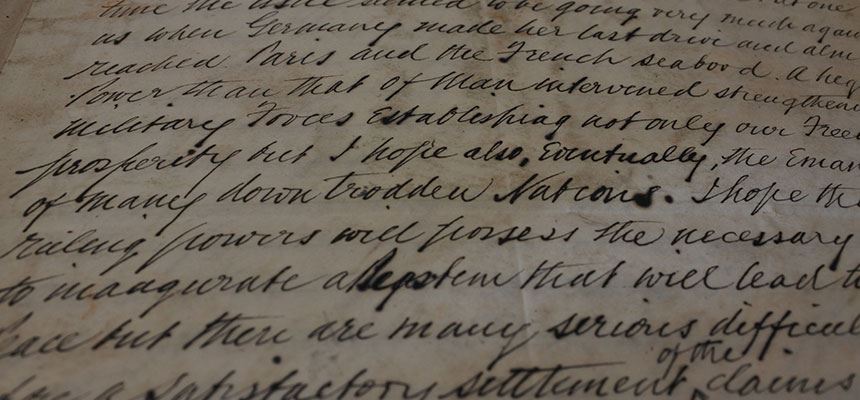 time the
to be going very much again
us when Germany made her last drive and alm
reached Paris and the French seabord. A hig
Power than that of Man intervened strengthene
Military Forces Establishing not only our Free
prosperity but I hope also, Eventually, the Eman
of Many down trodden Nations. I hope the
ruling powers will possess the necessary
to inaugurate a System that will lead to
Peace but there are many serious difficul
satisfactory settlement of the claims